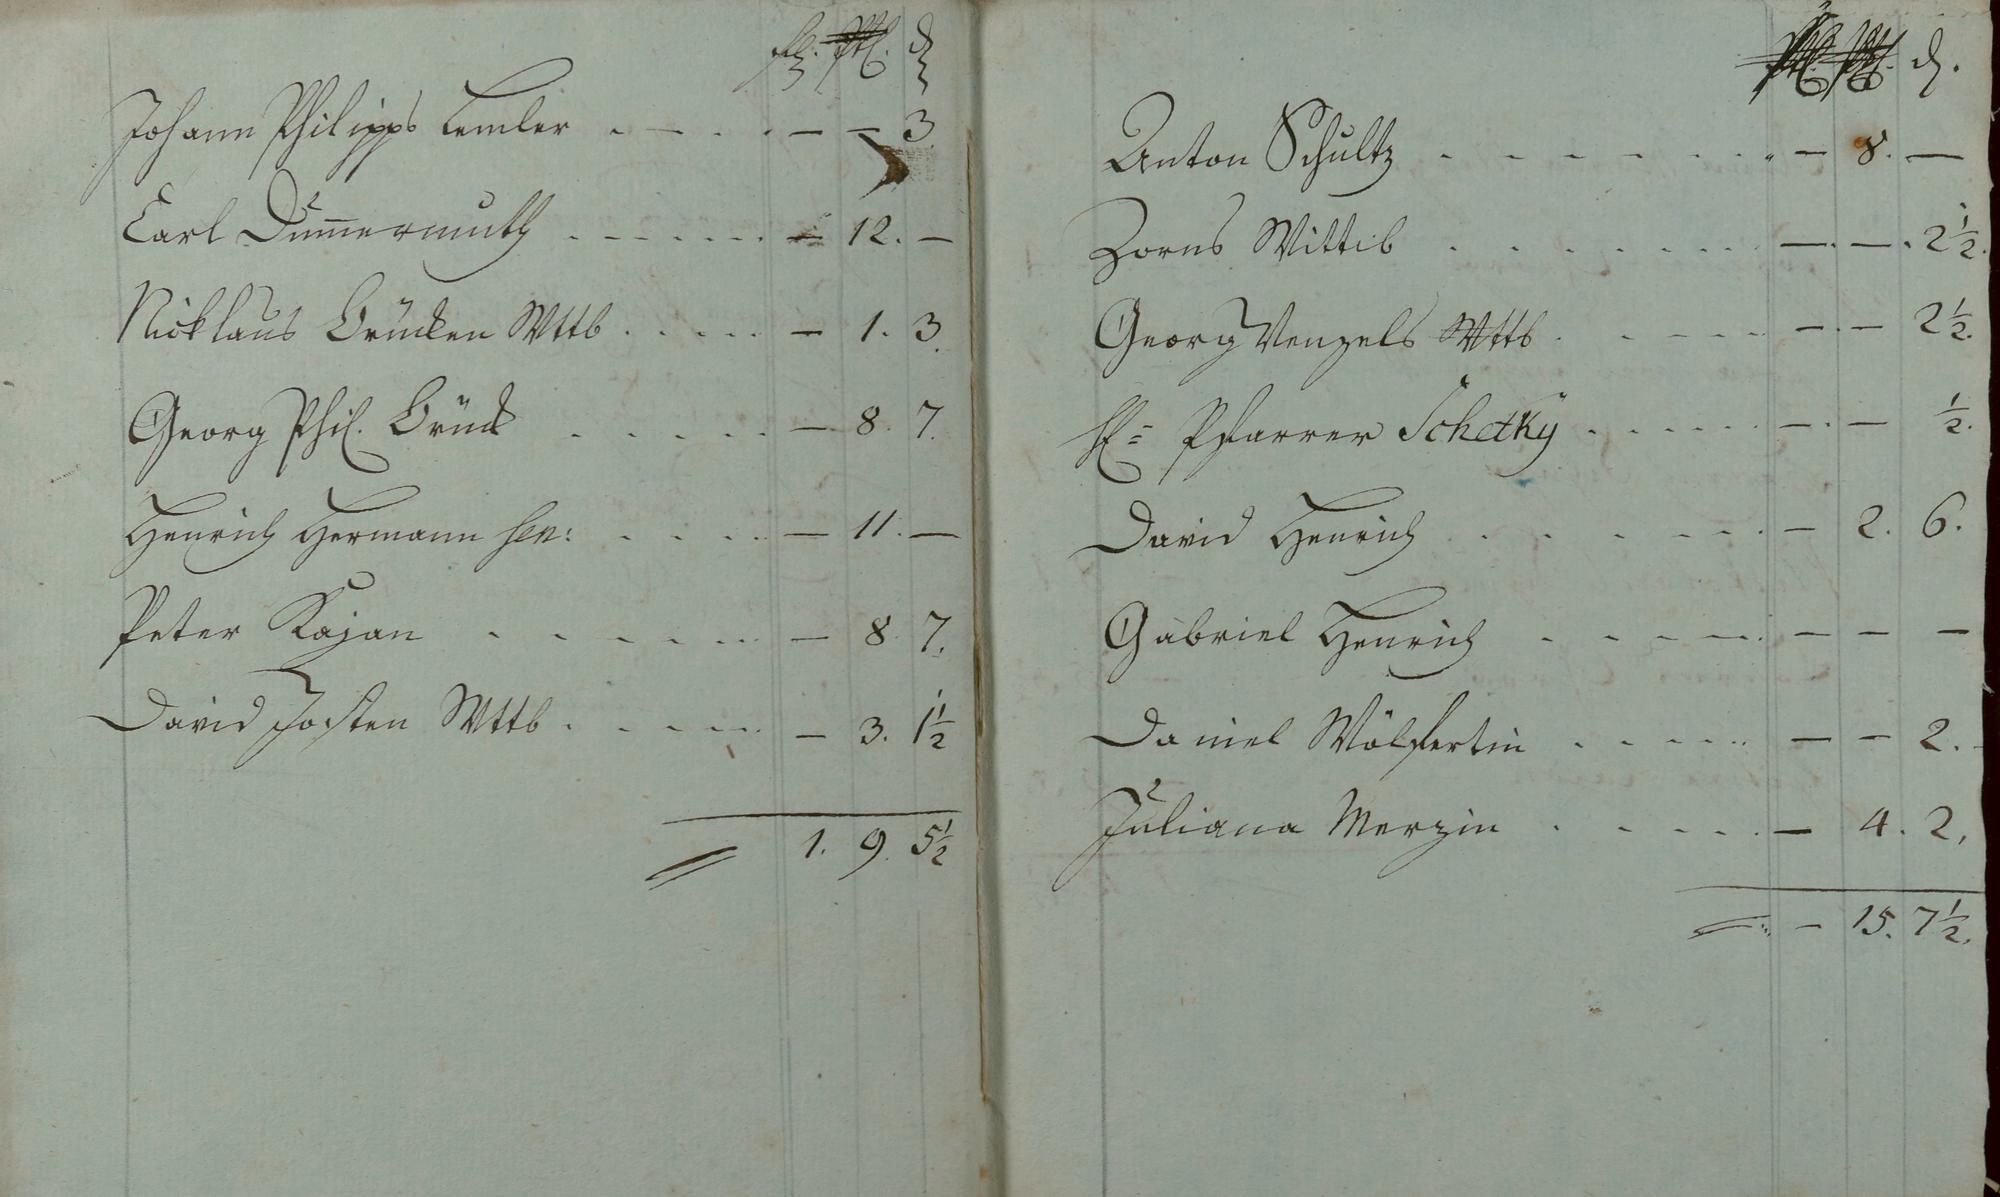 fl. d
Johann Philipps Lemler . - . . - - 3
Carl Dum̄ermuth . - - - - . . - 12. -
Nicklaus Brücken Wttb . . . - - - 1. 3.
Georg Phil. Brück . . . . . - 8. 7.
Henrich Hermann sen: . . . . - 11. -
Peter Kajan . . . . . . - 8. 7.
David Josten Wttb . . - - - - 3. 1½
1. 9. 5½
d.
Anton Schultz . . . . . . . . - 8. -
Zorns Wittib . . . . . . . -. -. 2½.
Georg Wenzels Wttb . . - - - - -. - 2½.
H= Pfarrer Schetky . . . . . -. - ½.
David Henrich . . . . . . . - 2. 6.
Gabriel Henrich . . . . . - - -
Daniel Wölfertin . . . . . - - 2.
Juliana Merzin . . . . . - 4. 2.
- 15. 7½.